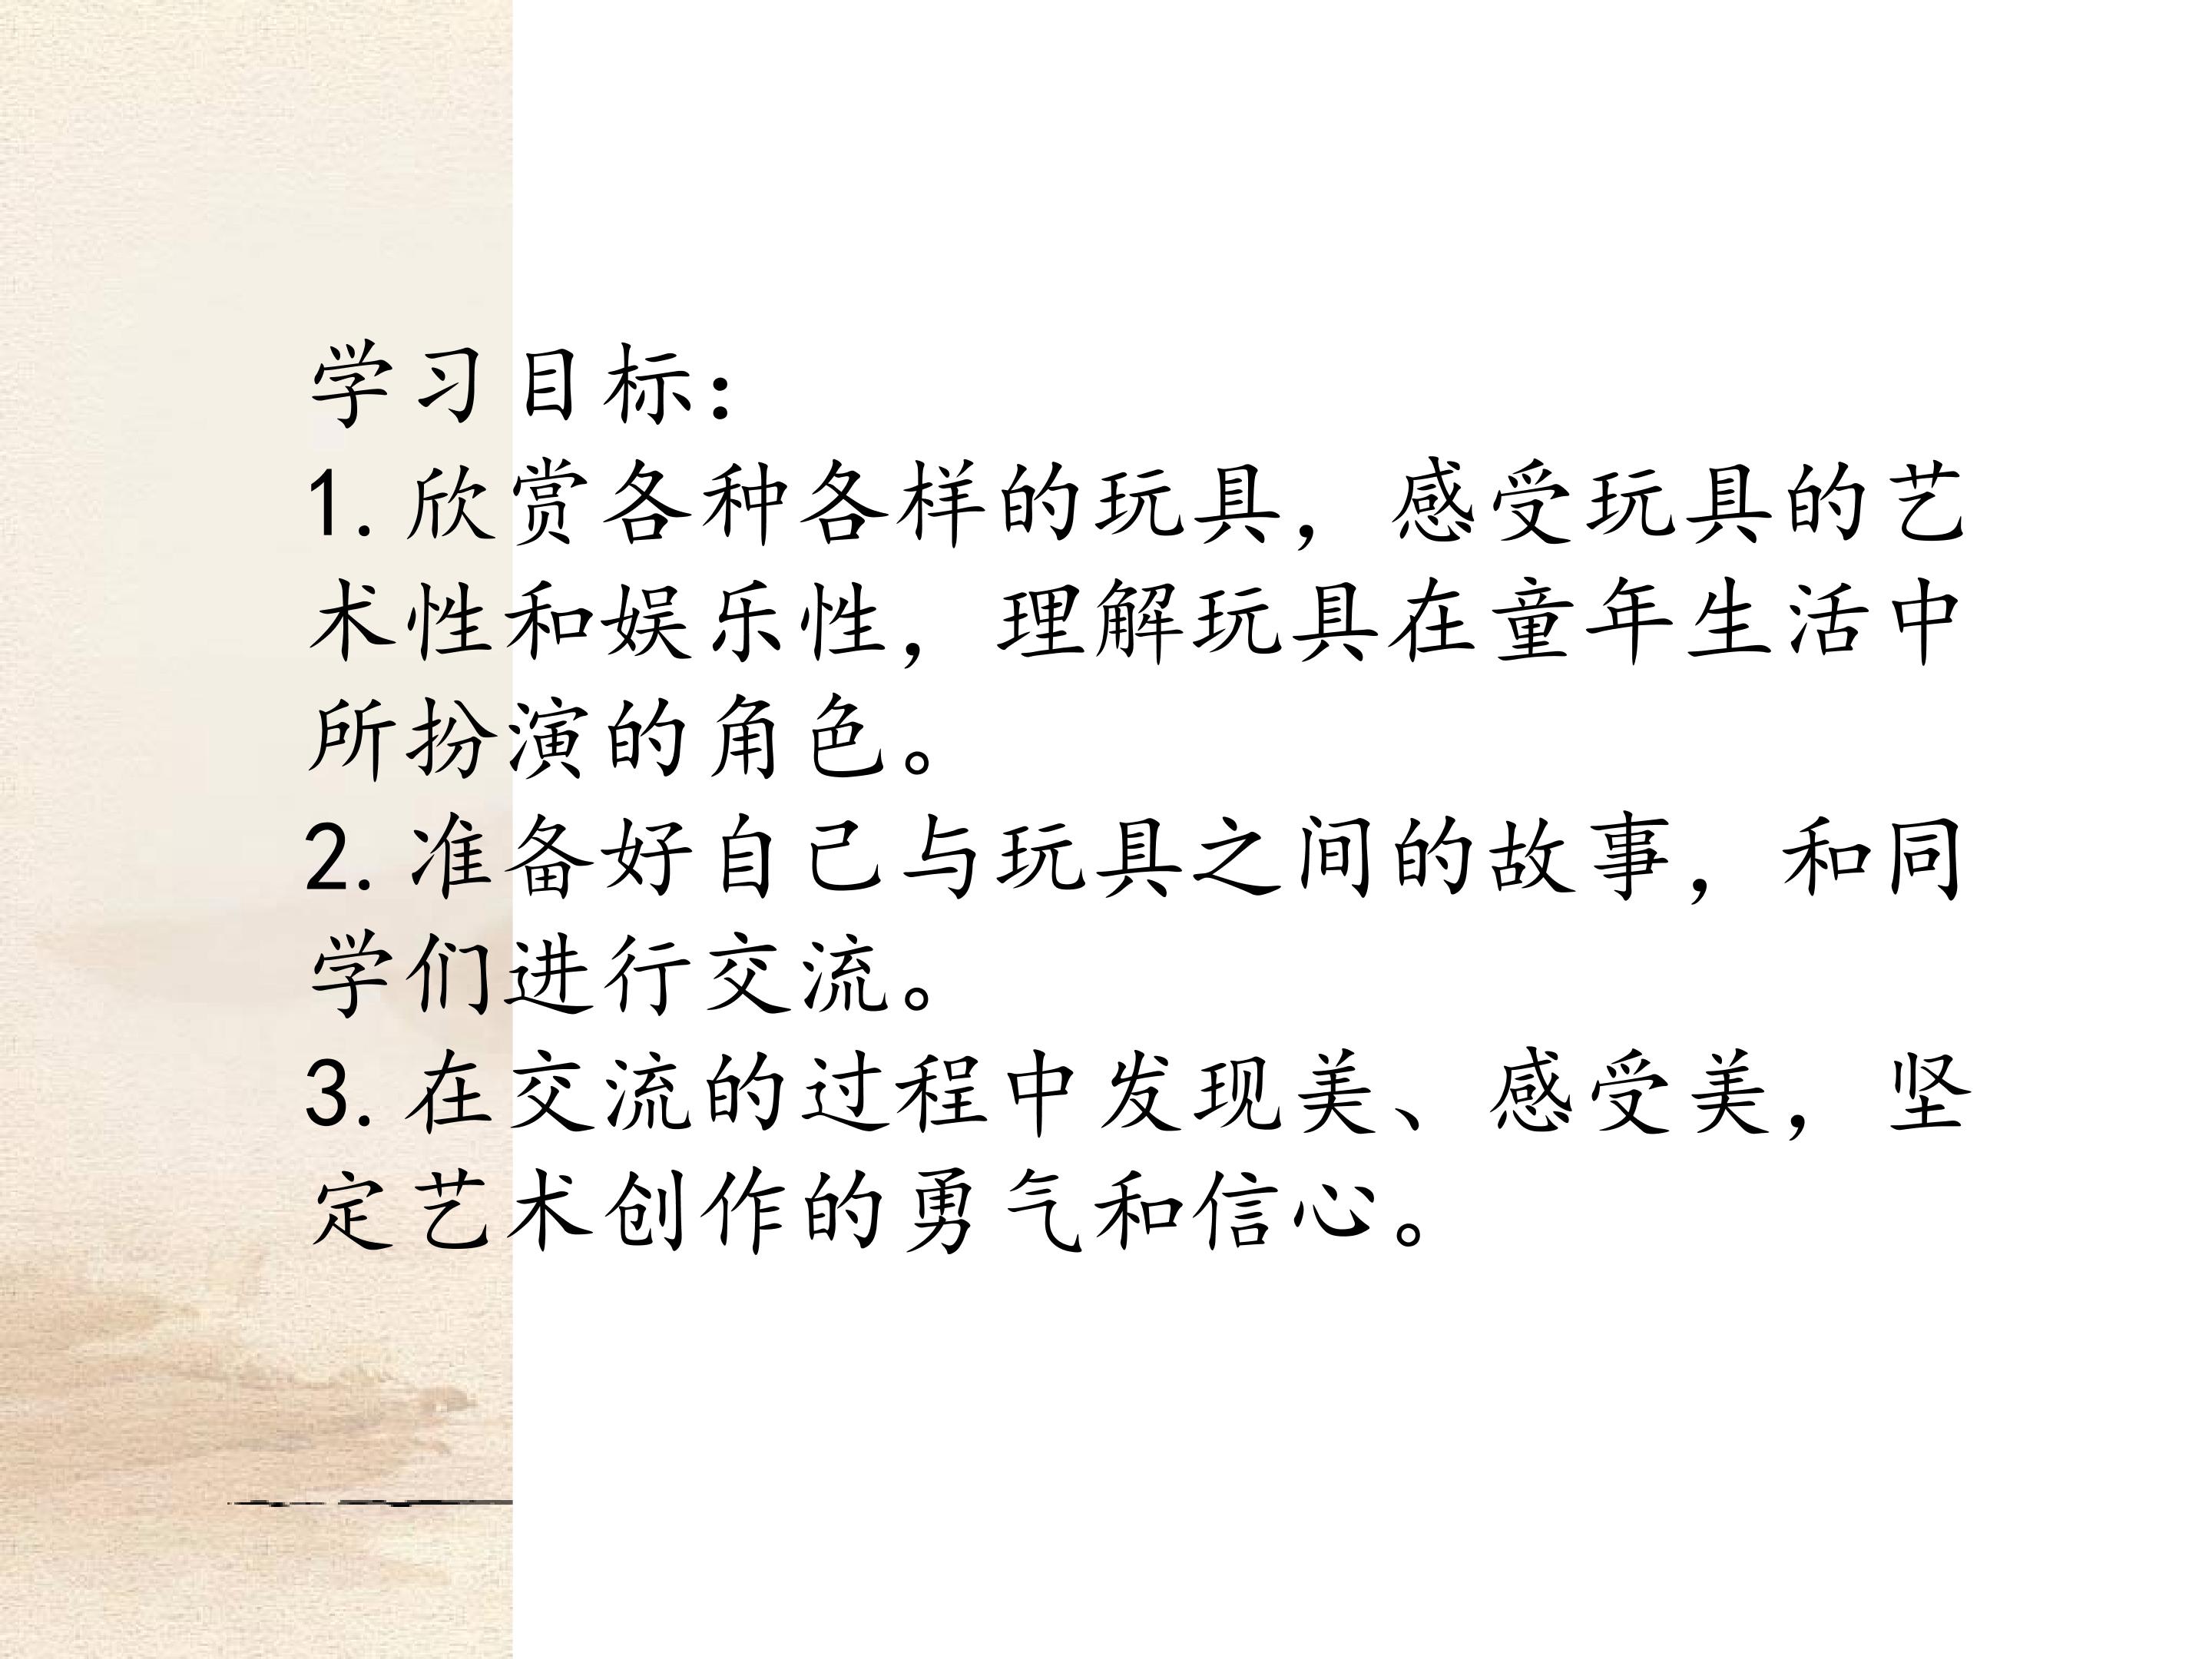 学习目标：
1.欣赏各种各样的玩具，感受玩具的艺
术性和娱乐性，理解玩具在童年生活中
所扮演的角色。
2.准备好自己与玩具之间的故事，和同
学们进行交流。
3.在交流的过程中发现美、感受美，坚
定艺术创作的勇气和信心。